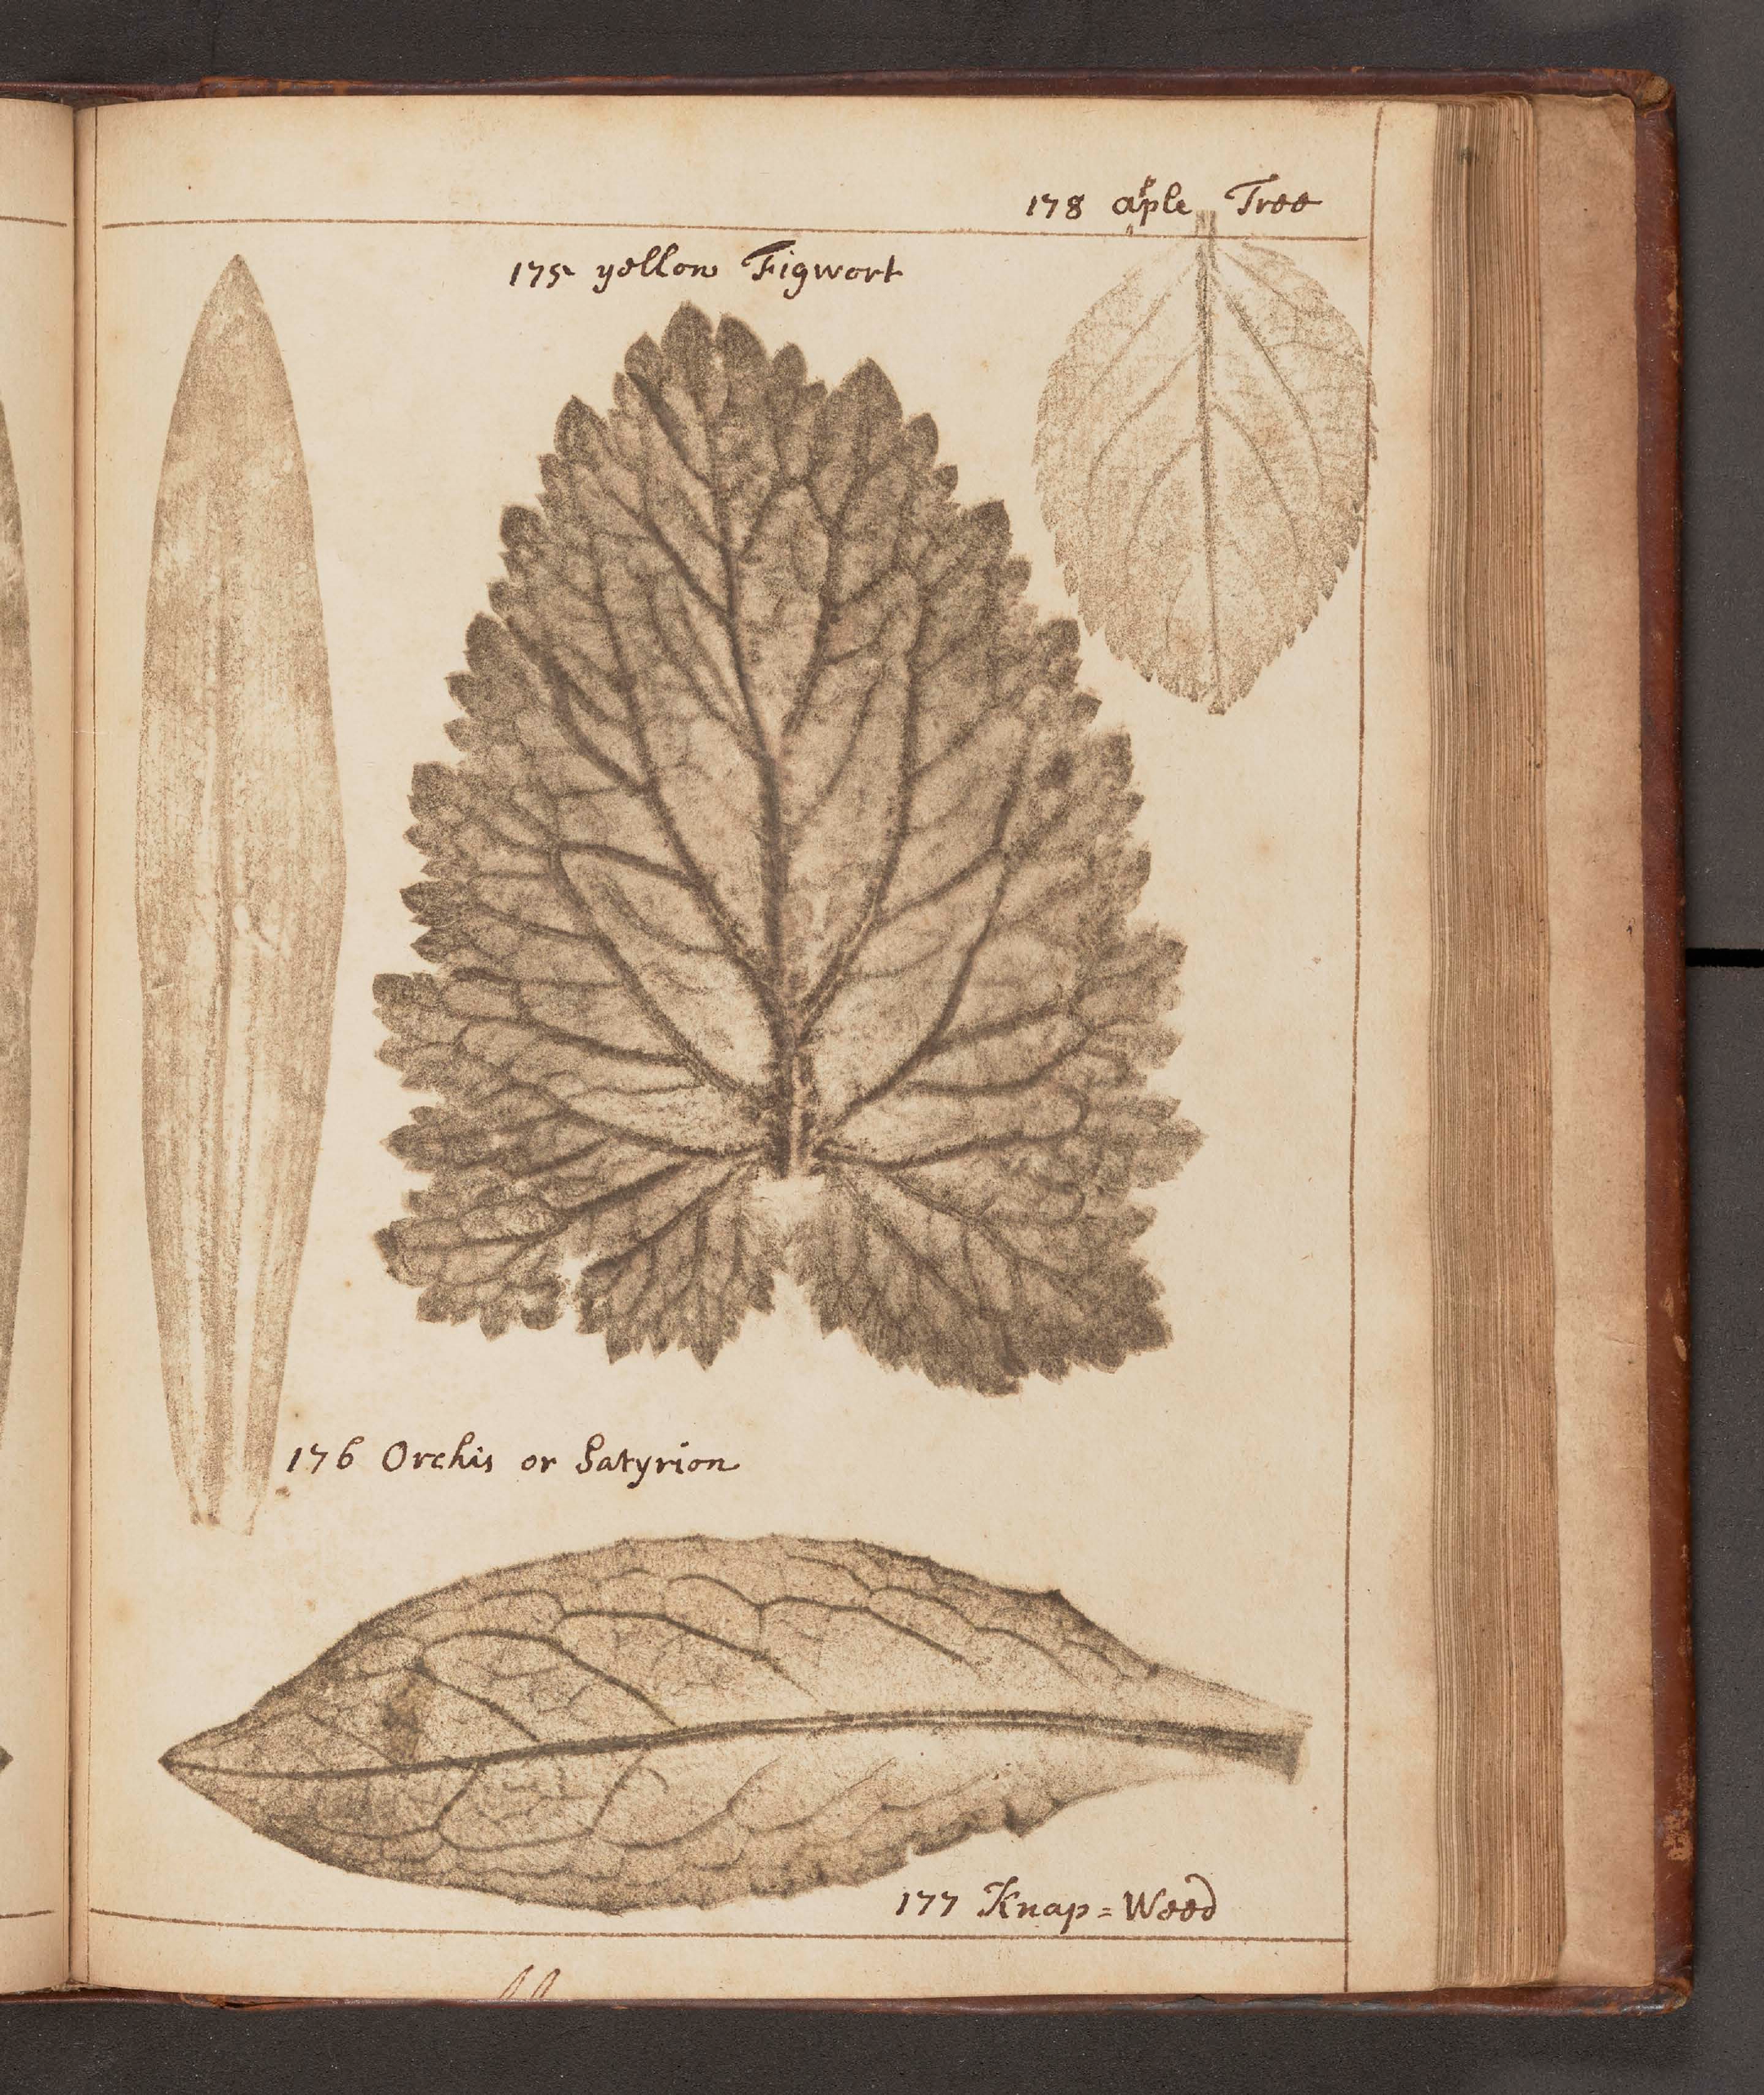 178 aple Tree
175 yellow Figwort
176 Orchis or Satyrion
177 Knap=Weed